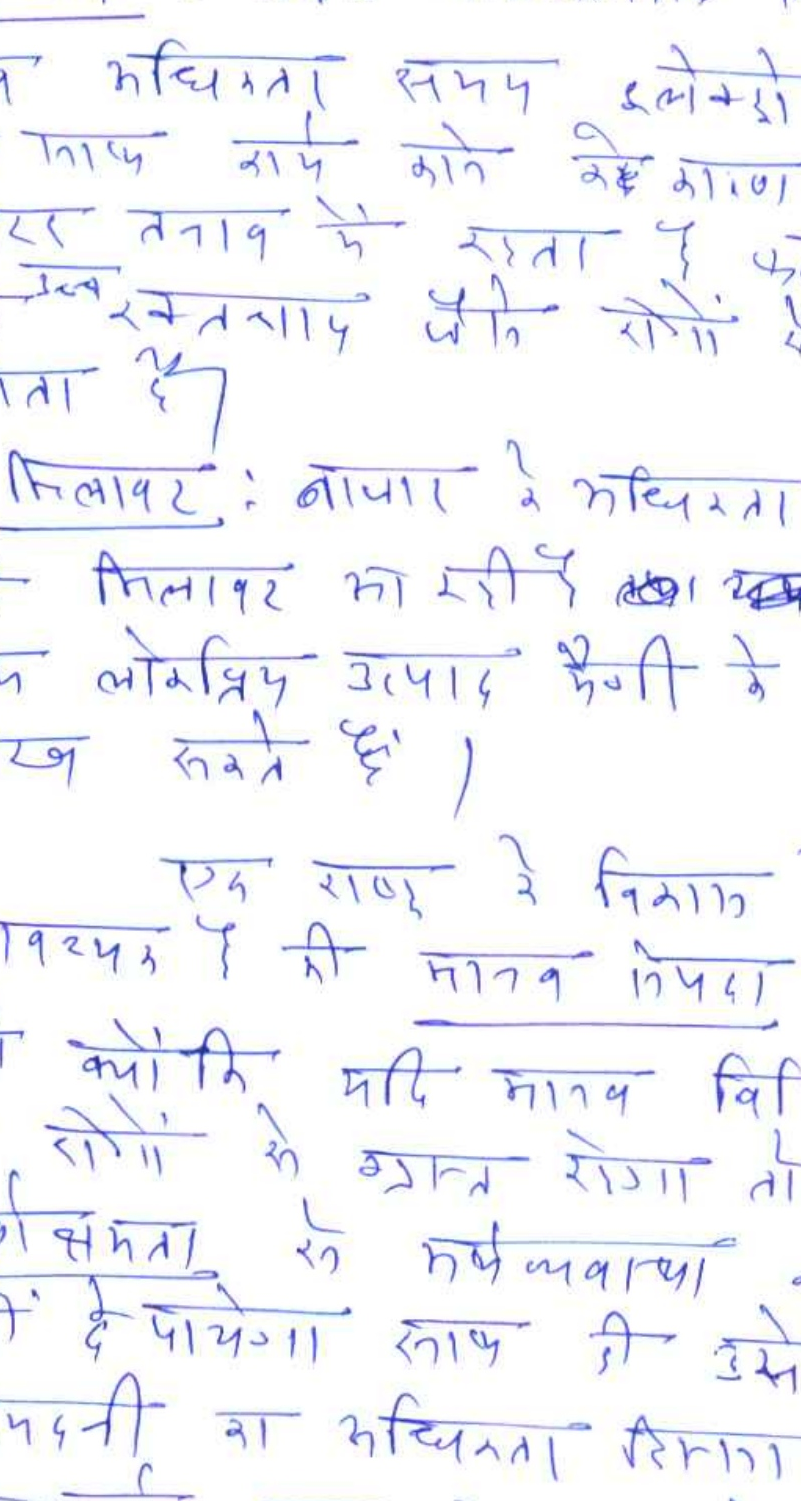 अधिकता समय इलेक्ट्रो
साथ कार्य करने के कारण
तनाव में रहता है
उच्च रक्तचाप जैसे रोगों से
ता है।
मिलावट : बाजार में अधिकता
मिलावट आ रही है
लोकप्रिय उत्पाद मैगी के
सकते हैं।
एक राष्ट्र के विकास
वश्यक है की मानव संपदा
क्योंकि यदि मानव वि
रोगों से ग्रस्त होगा तो
क्षमता से अर्थव्यवस्था
दे पायेगा साथ ही उसे
मदनी का अधिकता हिस्सा